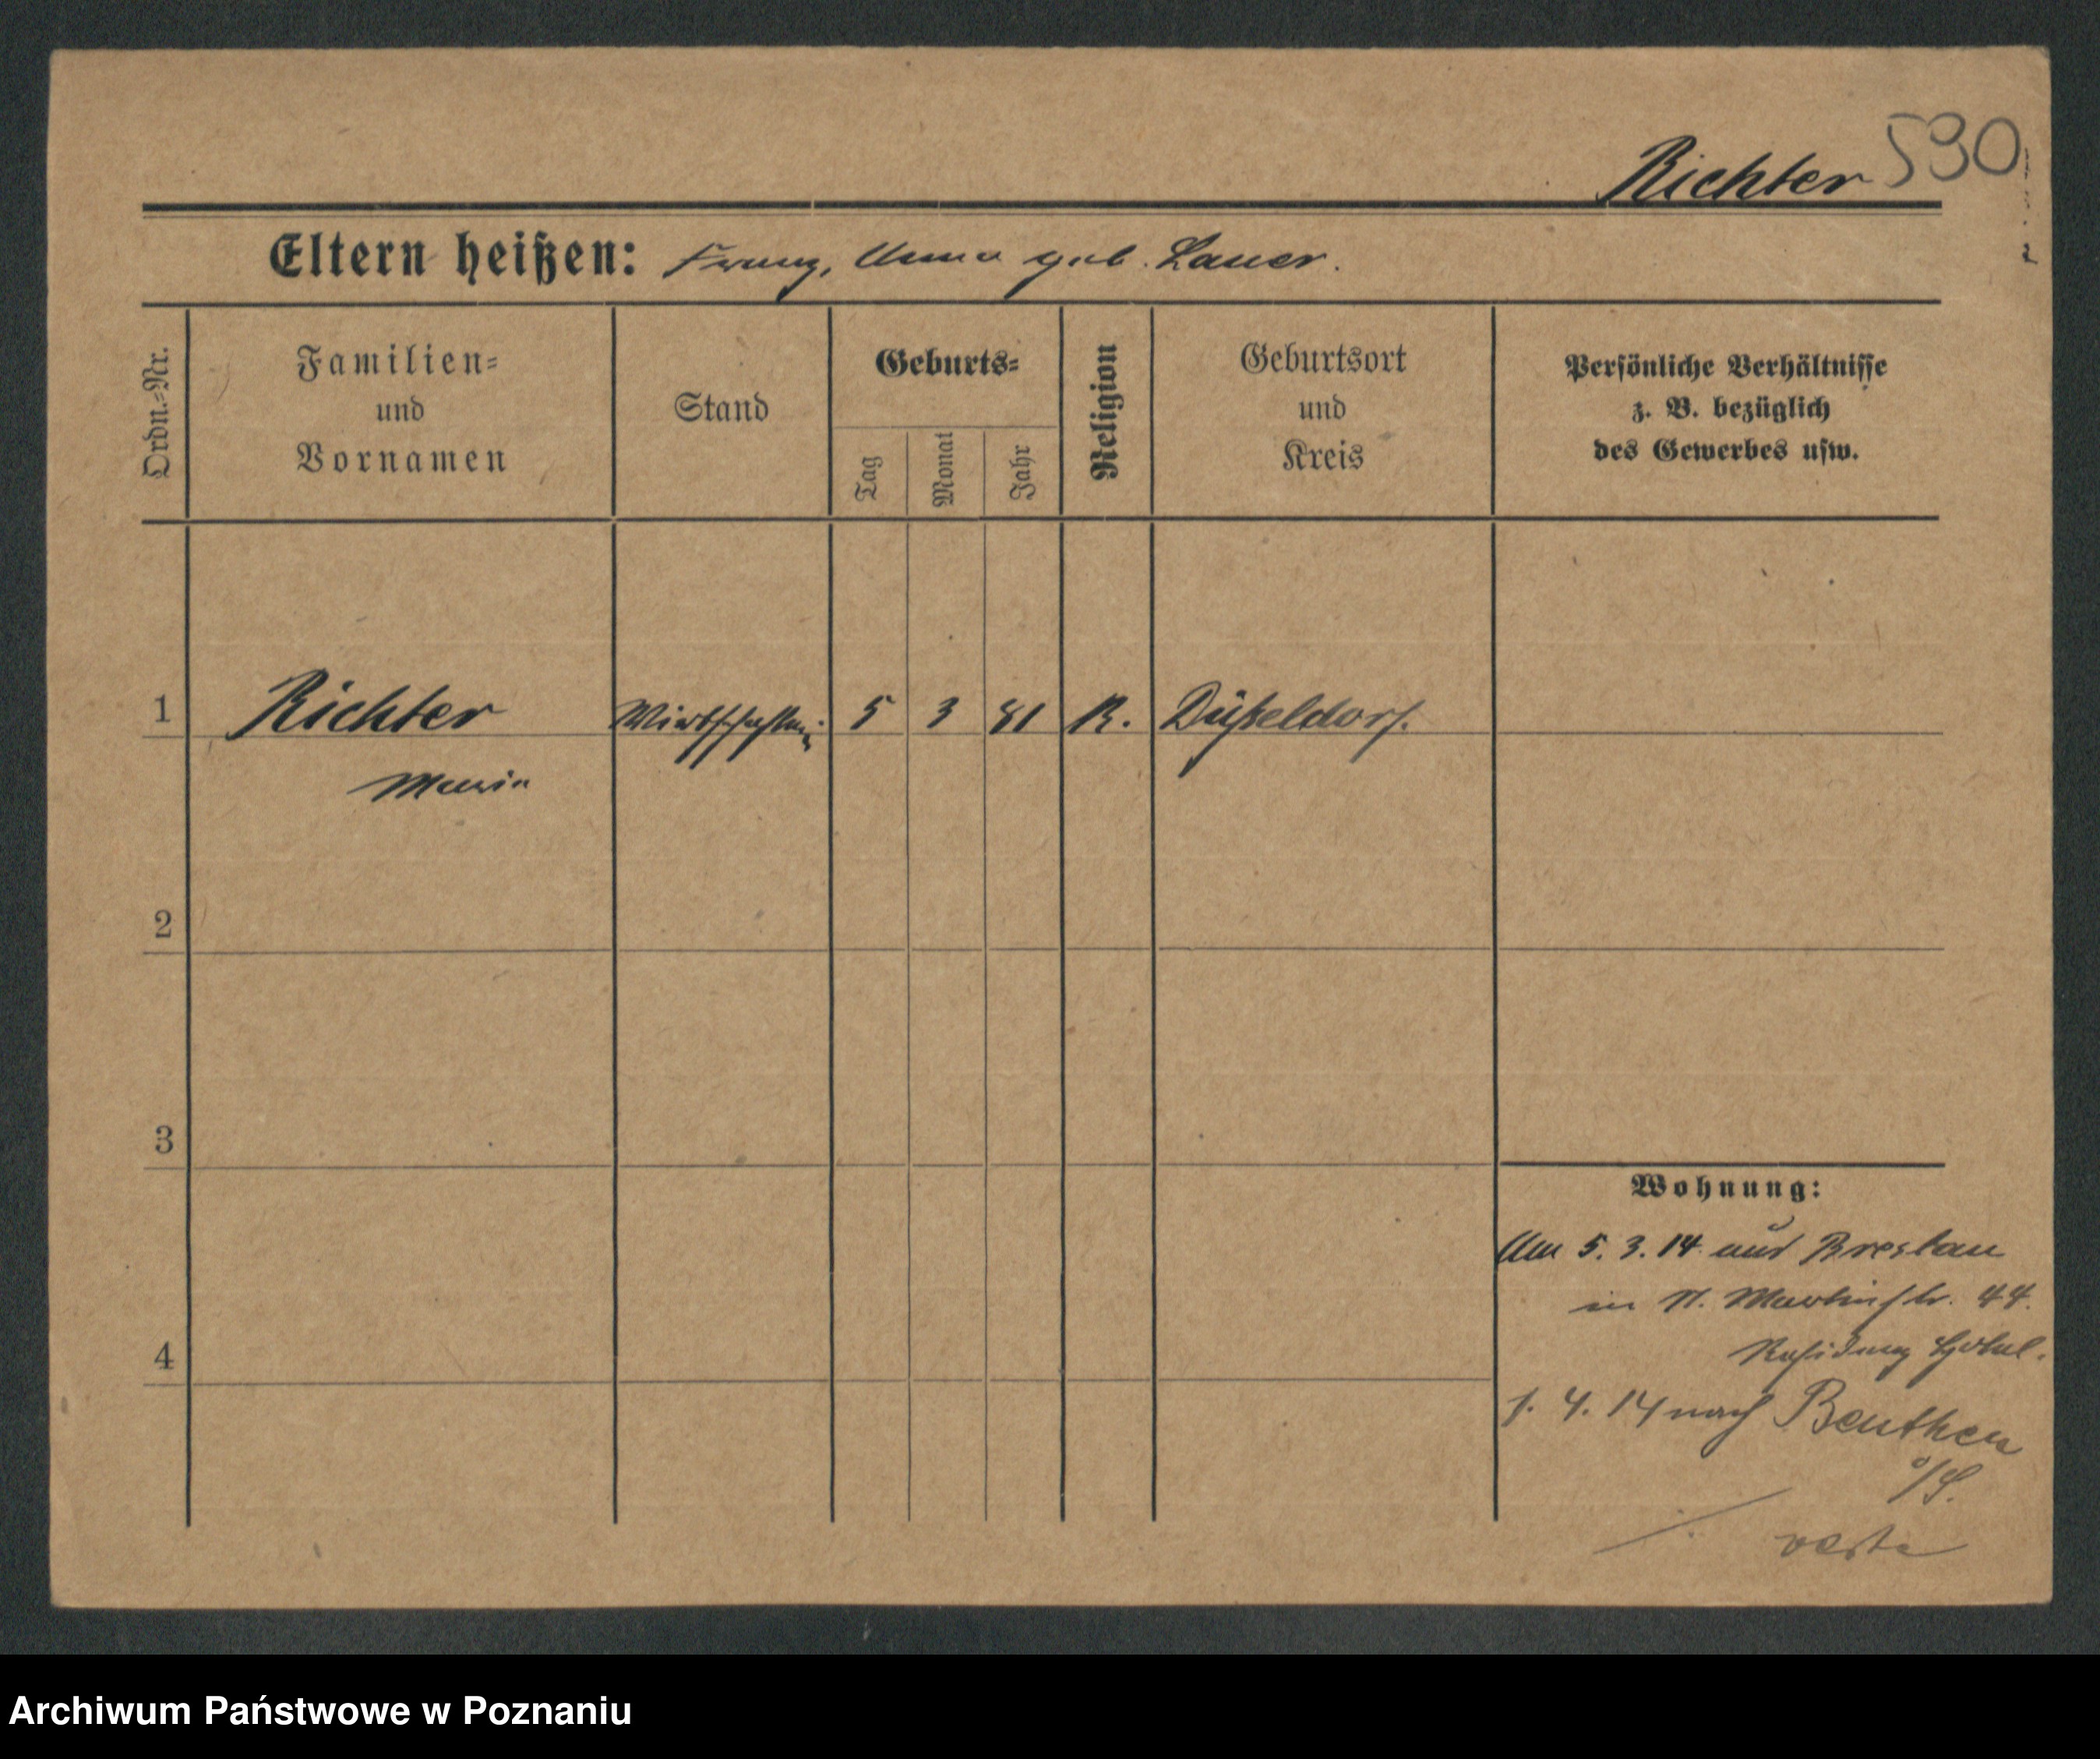 Richter 590
Eltern heißen: Franz, Anna geb. Lauer.
Ordn.-Nr.
Familien-
und
Vornamen
Stand
Geburts-
Tag
Monat
Jahr
Religion
Geburtsort
und
Kreis
Persönliche Verhältnisse
z. B. bezüglich
des Gewerbes usw.
1 Richter 5 3 81 K. Düßeldorf.
Maria
2
3
4
Wohnung:
Am 5. 3. 14 aus Breslau
in St. Martinstr. 44.
Residenz Hotel.
1. 4. 14 nach Beuthen
o/S.
Archiwum Państwowe w Poznaniu